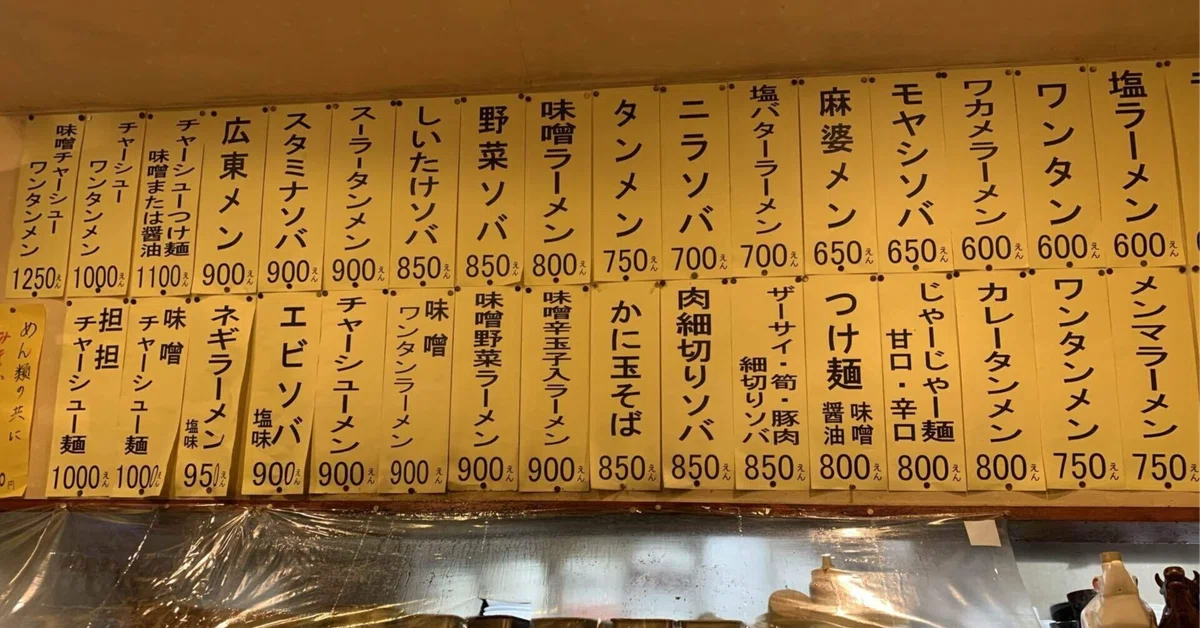 塩ラーメン
600えん
ワンタン
600えん
ワカメラーメン
600えん
モヤシソバ
650えん
麻婆メン
650えん
塩バターラーメン
700えん
ニラソバ
700えん
タンメン
750えん
味噌ラーメン
800えん
野菜ソバ
850えん
しいたけソバ
850えん
スーラータンメン
900えん
スタミナソバ
900えん
広東メン
900えん
チャーシューつけ麺
味噌または醤油
1100えん
チャーシュー
ワンタンメン
1000えん
味噌チャーシュー
ワンタンメン
1250えん
メンマラーメン
750えん
ワンタンメン
750えん
カレータンメン
800えん
じゃーじゃー麺
甘口・辛口
800えん
つけ麺
味噌
醤油
800えん
ザーサイ・筍・豚肉
細切りソバ
850えん
肉細切りソバ
850えん
かに玉そば
850えん
味噌辛玉子入ラーメン
900えん
味噌野菜ラーメン
900えん
味噌
ワンタンラーメン
900えん
チャーシューメン
900えん
エビソバ
塩味
900えん
ネギラーメン
塩味
950えん
味噌
チャーシュー麺
1000えん
担担
チャーシュー麺
1000えん
めん類の共に